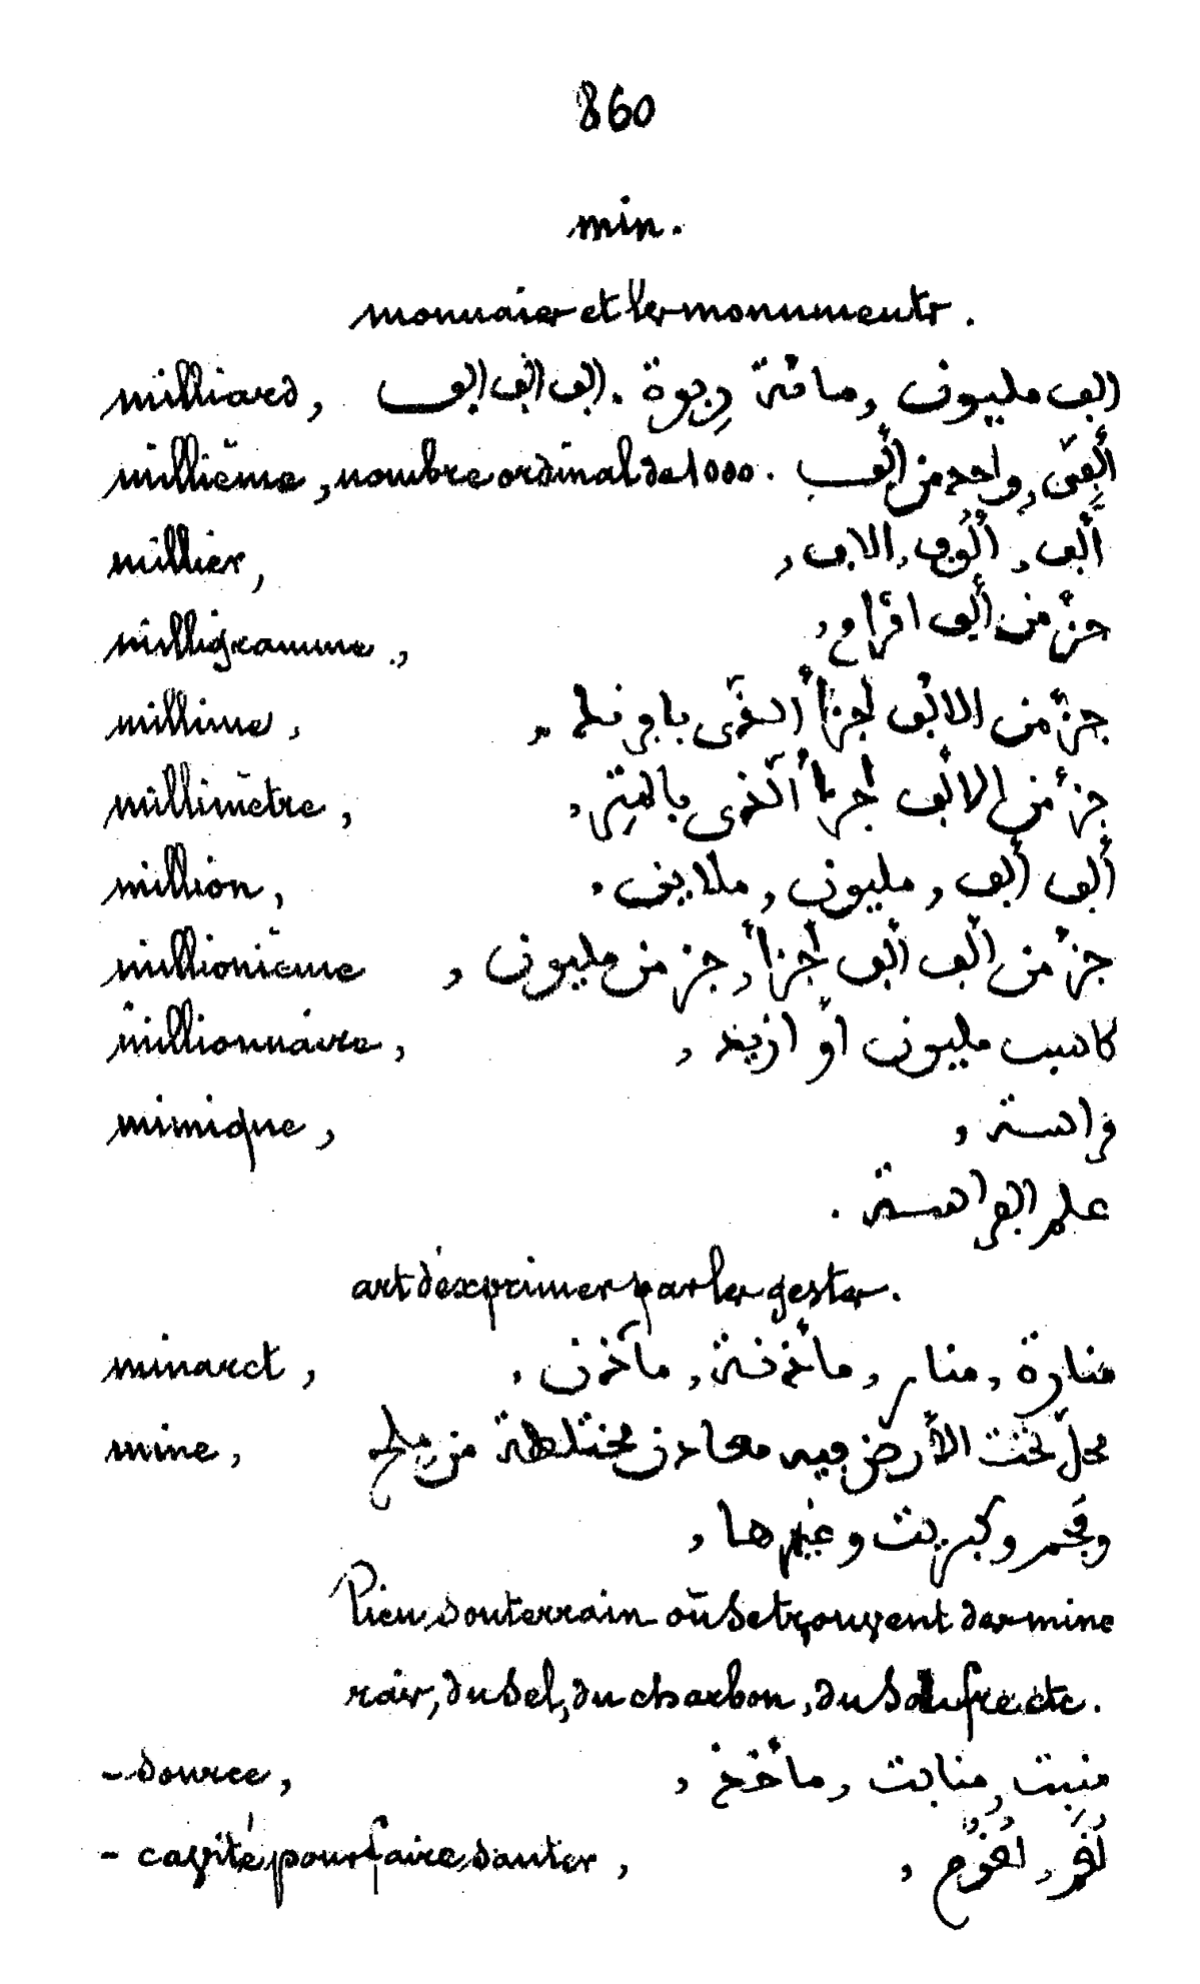 860
min.
monnaies et les monuments.
milliard, ألف مليون, ومائة ربوة. ألف ألف ألف
millième, nombre ordinal de 1000. واحد من ألف
millier, ألف, ألوف, الاف,
milligramme, جزء من ألف
millime, جزء من الالف
millimètre, جزء من الالف
million, ألف ألف, مليون, ملايين.
millionième جزء من ألف ألف جزأ, جزء من مليون,
millionnaire, كاسب مليون أو ازيد,
mimique, فراسة,
علم الفراسة.
art d'exprimer par les gestes.
minaret, منارة, منار, مأذنة, مآذن,
mine, محلّ تحت الأرض فيه معادن مختلطة من ملح
وفحم وكبريت وغيرها,
lieu souterrain où se trouvent des mine
rais, du sel, du charbon, du soufre etc.
- source, منبت, منابت, مأخذ,
- cavité pour faire sauter,